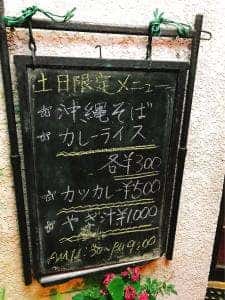 土日限定メニュー
沖縄そば
カレーライス
各¥300
カツカレー¥500
やぎ汁¥1000
AM11:30~PM9:00